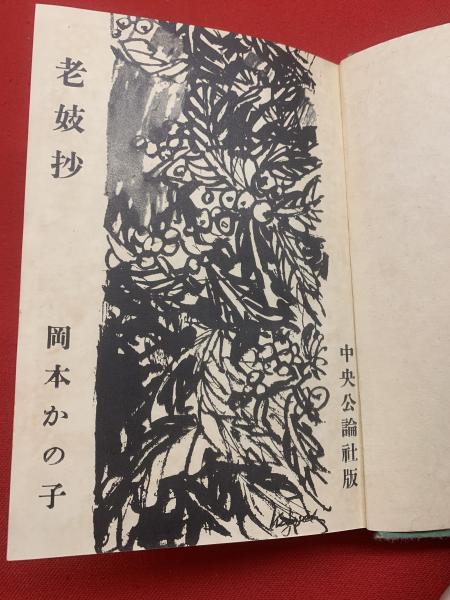 老妓抄
岡本かの子
中央公論社版